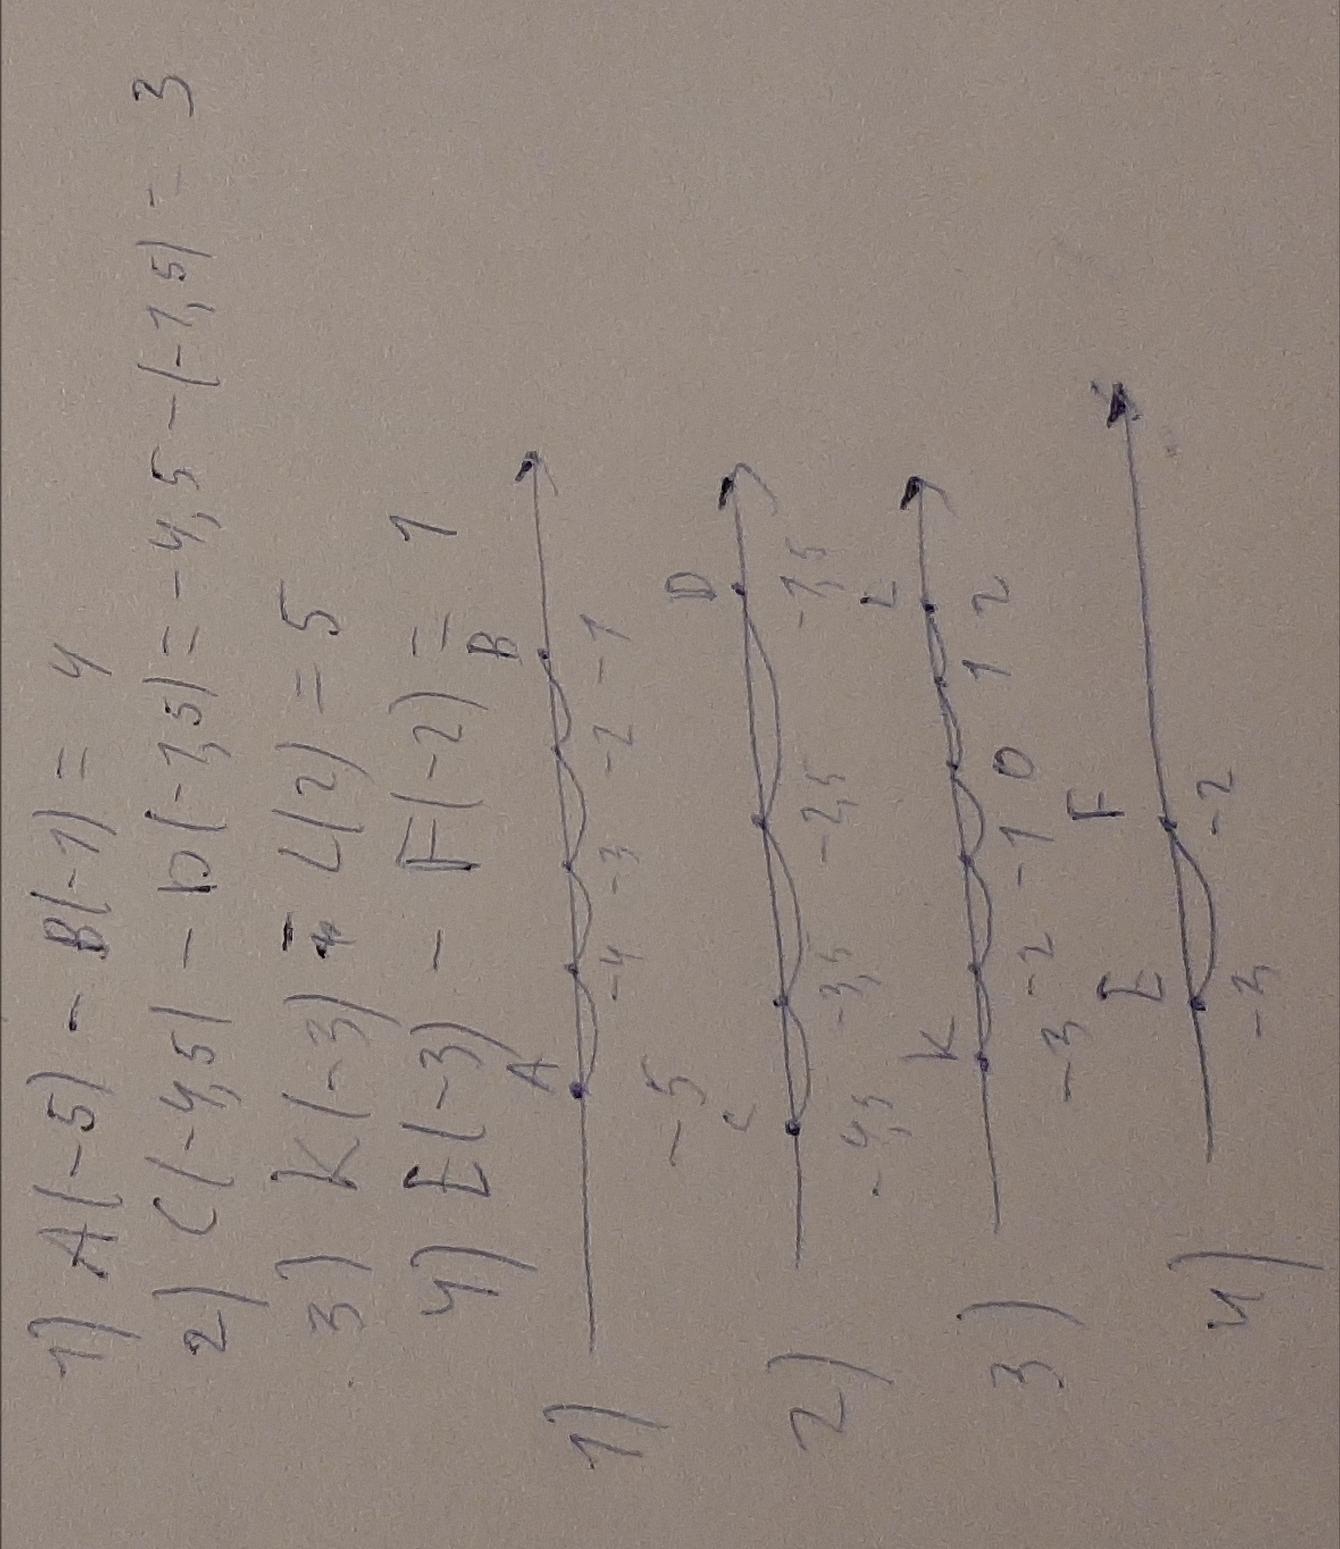 1) A(-5) - B(-1) = 4
2) C(-4,5) - D(-1,5) = -4,5 - (-1,5) = 3
3) K(-3) - L(2) = 5
4) E(-3) - F(-2) = 1
1) A B
-5 -4 -3 -2 -1
2) C D
-4,5 -3,5 -2,5 -1,5
3) K L
-3 -2 -1 0 1 2
4) E F
-3 -2